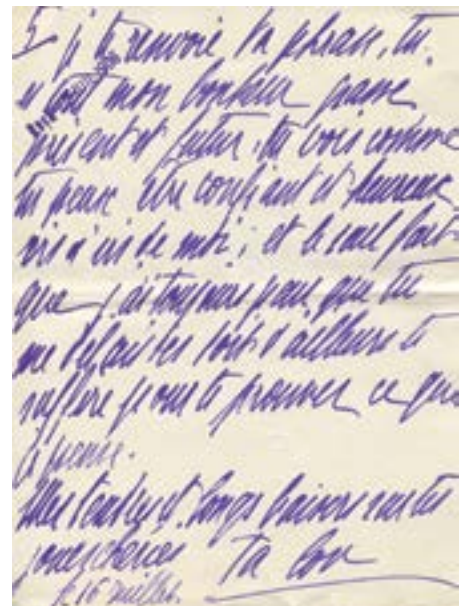 5 je te renvoie ta phrase, tu
es tout mon bonheur passé
présent et futur, tu vois comme
tu peux être confiant et heureux
vis à vis de moi ; et le seul fait
que j'ai toujours peur que tu
me doit d'ailleurs te
suffire pour te prouver ce que
je pense.
Mes tendres et longs baisers sur tes
joues chéries Ta
le 16 juillet.